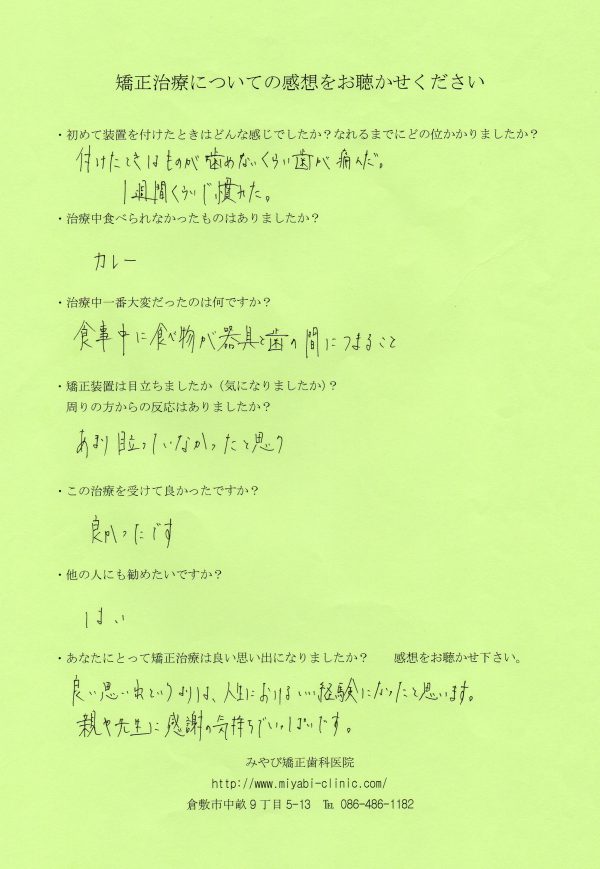 矯正治療についての感想をお聴かせください
・初めて装置を付けたときはどんな感じでしたか？なれるまでにどの位かかりましたか？
付けたときはものが歯めないくらい歯が痛んだ。
1週間くらいで慣れた。
・治療中食べられなかったものはありましたか？
カレー
・治療中一番大変だったのは何ですか？
食事中に食べ物が器具と歯の間につまること
・矯正装置は目立ちましたか（気になりましたか）？
周りの方からの反応はありましたか？
あまり目立っていなかったと思う
・この治療を受けて良かったですか？
良かったです
・他の人にも勧めたいですか？
はい
・あなたにとって矯正治療は良い思い出になりましたか？　感想をお聴かせ下さい。
良い思い出というよりは、人生におけるいい経験になったと思います。
親や先生に感謝の気持ちでいっぱいです。
みやび矯正歯科医院
http://www.miyabi-clinic.com/
倉敷市中畝９丁目5-13　℡ 086-486-1182